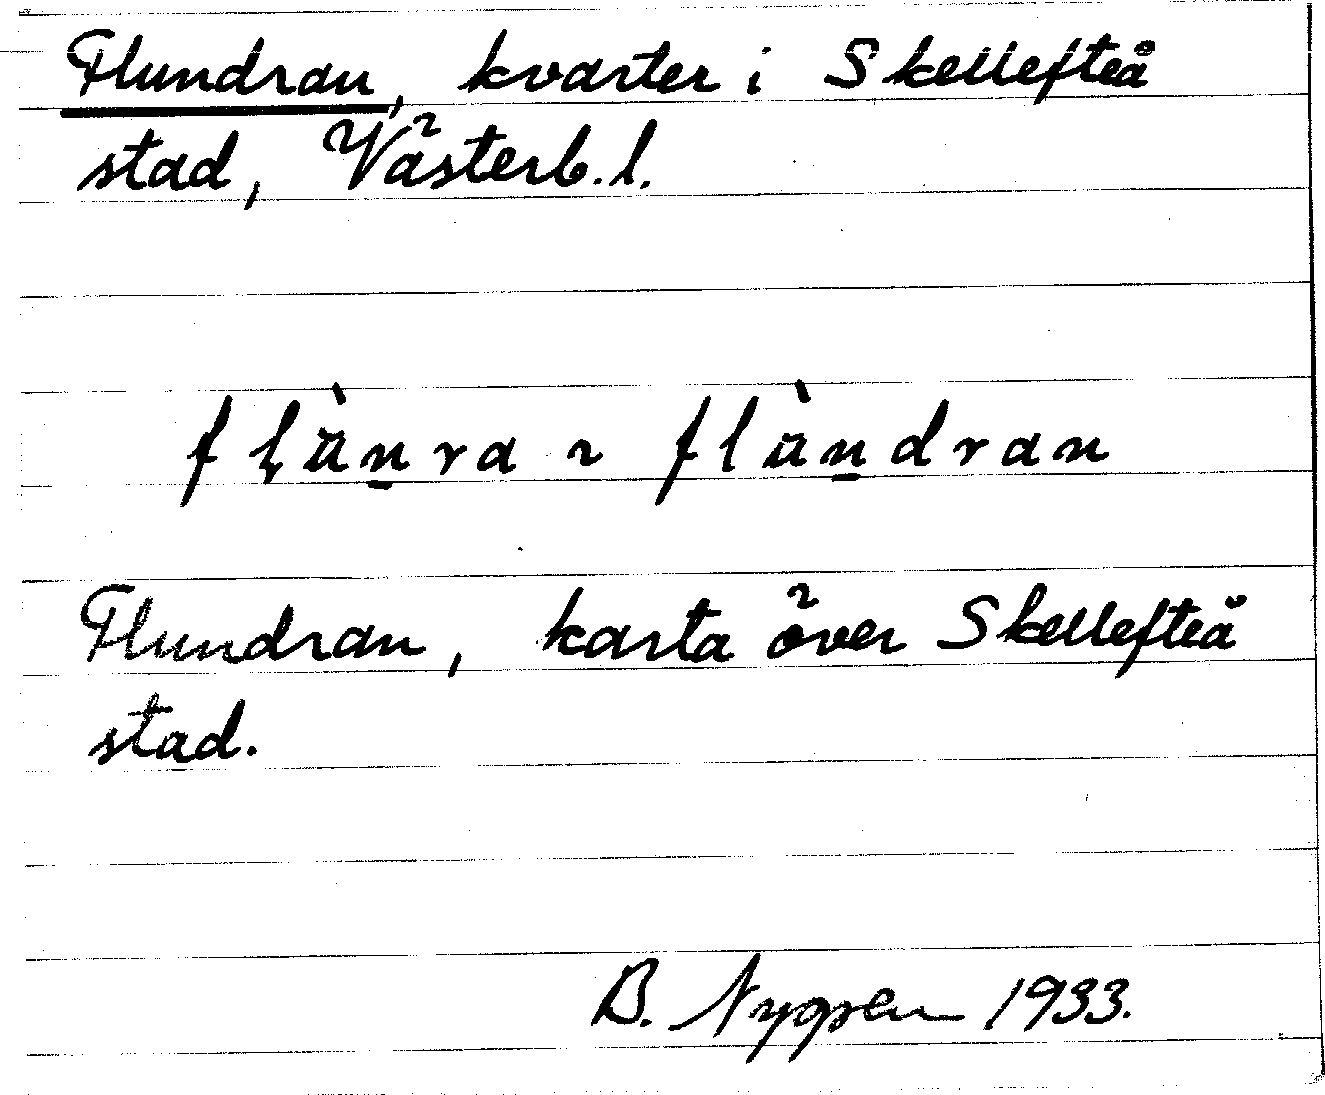 Flundran, kvarter i Skellefteå
stad, Västerb. l.
fḷùn̲ra ~ flùn̲dran
Flundran, karta över Skellefteå
stad.
B. Nygren 1933.